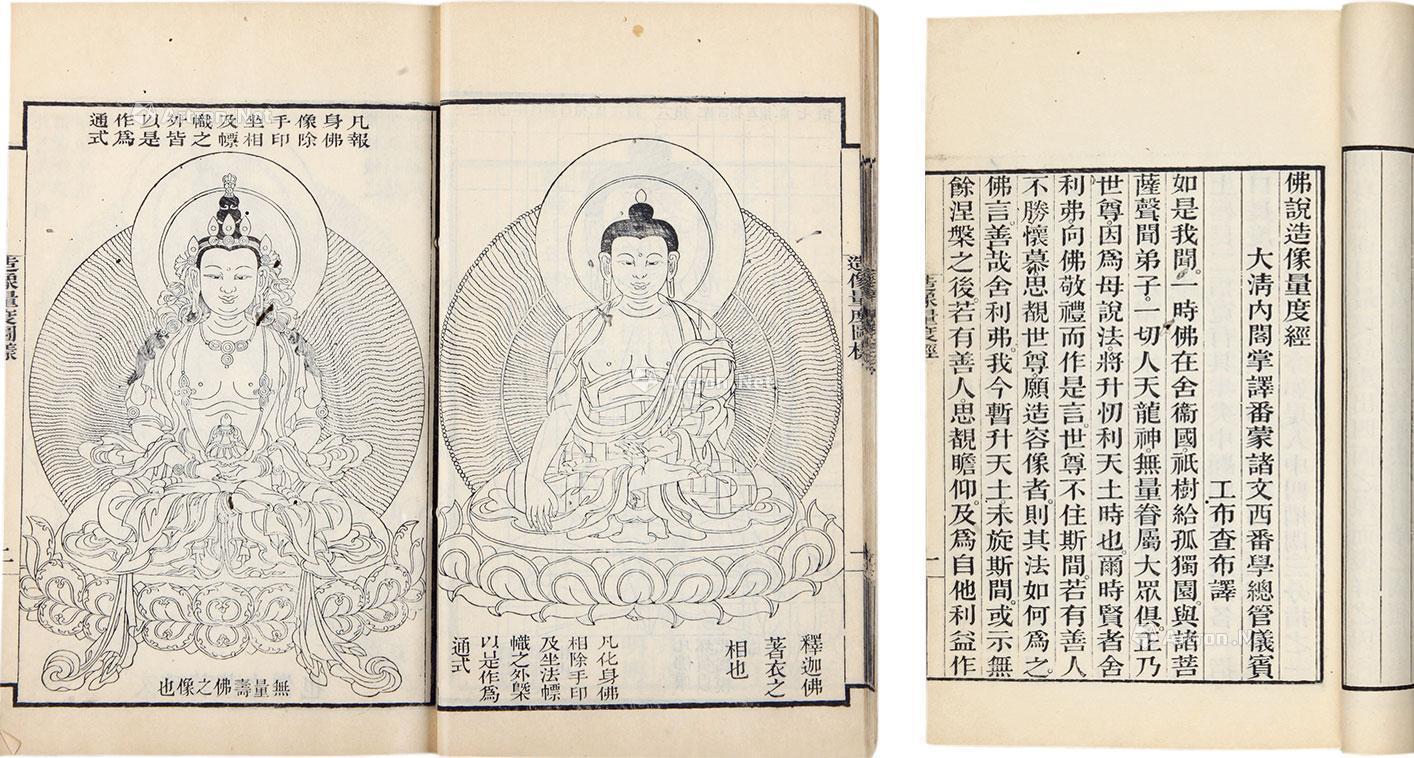 釋迦佛
著衣之
相也
凡化身佛
相除手印
及坐法幖
幟之外槩
以是作爲
通式
造像量度圖樣
一
凡報
身佛
像除
手印
坐相
及幖
幟之
外皆
以是
作爲
通式
無量壽佛之像也
造像量度圖樣
二
佛說造像量度經
大淸內閣掌譯番蒙諸文西番學總管儀賓
工布查布譯
如是我聞。一時佛在舍衞國。祇樹給孤獨園。與諸菩
薩聲聞弟子。一切人天龍神。無量眷屬大眾俱。正乃
世尊。因爲母說法。將升忉利天土時也。爾時賢者舍
利弗。向佛敬禮而作是言。世尊不住斯閒。若有善人。
不勝懷慕。思覩世尊。願造容像者。則其法如何爲之。
佛言。善哉舍利弗。我今暫升天土。未旋斯閒。或示無
餘涅槃之後。若有善人。思覩瞻仰。及爲自他利益作
造像量度經
一
Artron.Net
Artron.Net
Artron.Net